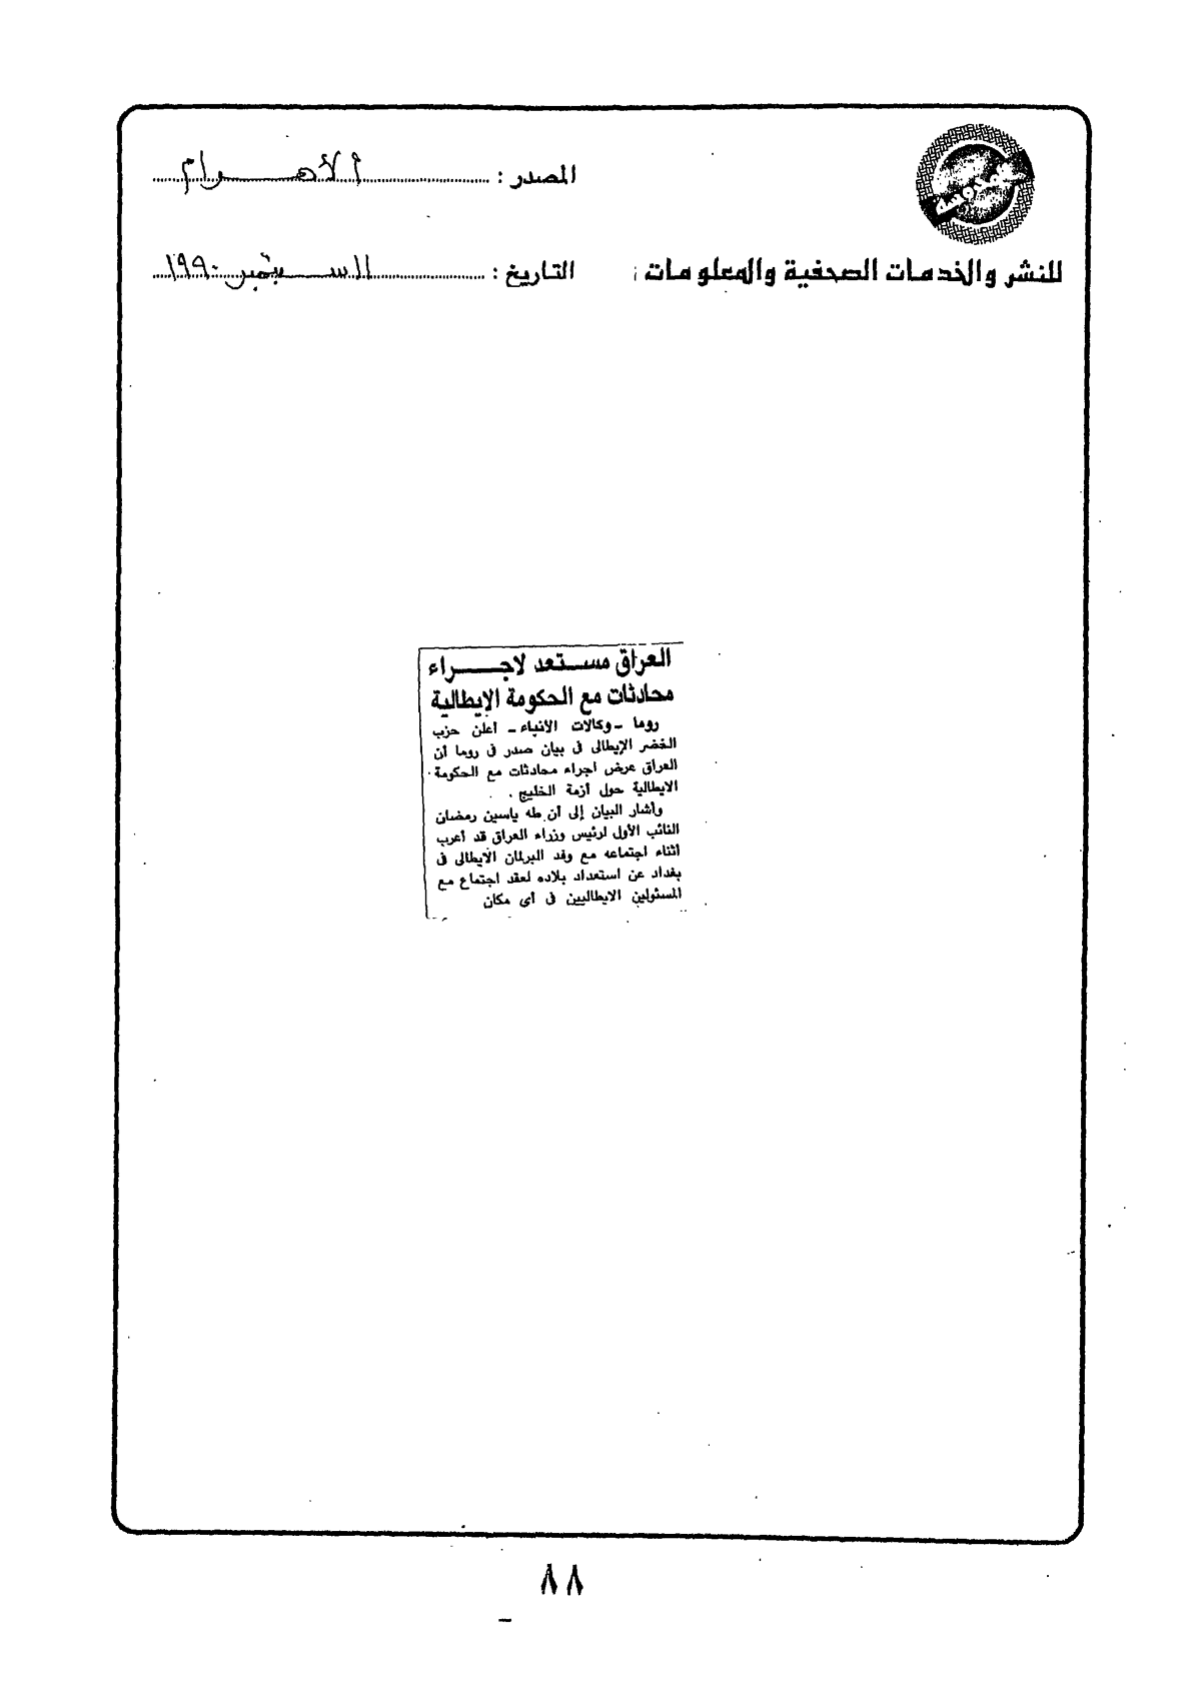 المصدر : الأهرام
للنشر والخدمات الصحفية والمعلومات
التاريخ : ١١ سبتمبر ١٩٩٠
العراق مستعد لاجراء
محادثات مع الحكومة الإيطالية
روما - وكالات الأنباء - أعلن حزب
الخضر الإيطالى فى بيان صدر فى روما أن
العراق عرض اجراء محادثات مع الحكومة
الايطالية حول أزمة الخليج .
وأشار البيان إلى أن طه ياسين رمضان
النائب الأول لرئيس وزراء العراق قد أعرب
اثناء اجتماعه مع وفد البرلمان الايطالى فى
بغداد عن استعداد بلاده لعقد اجتماع مع
المسئولين الايطاليين فى أى مكان
٨٨